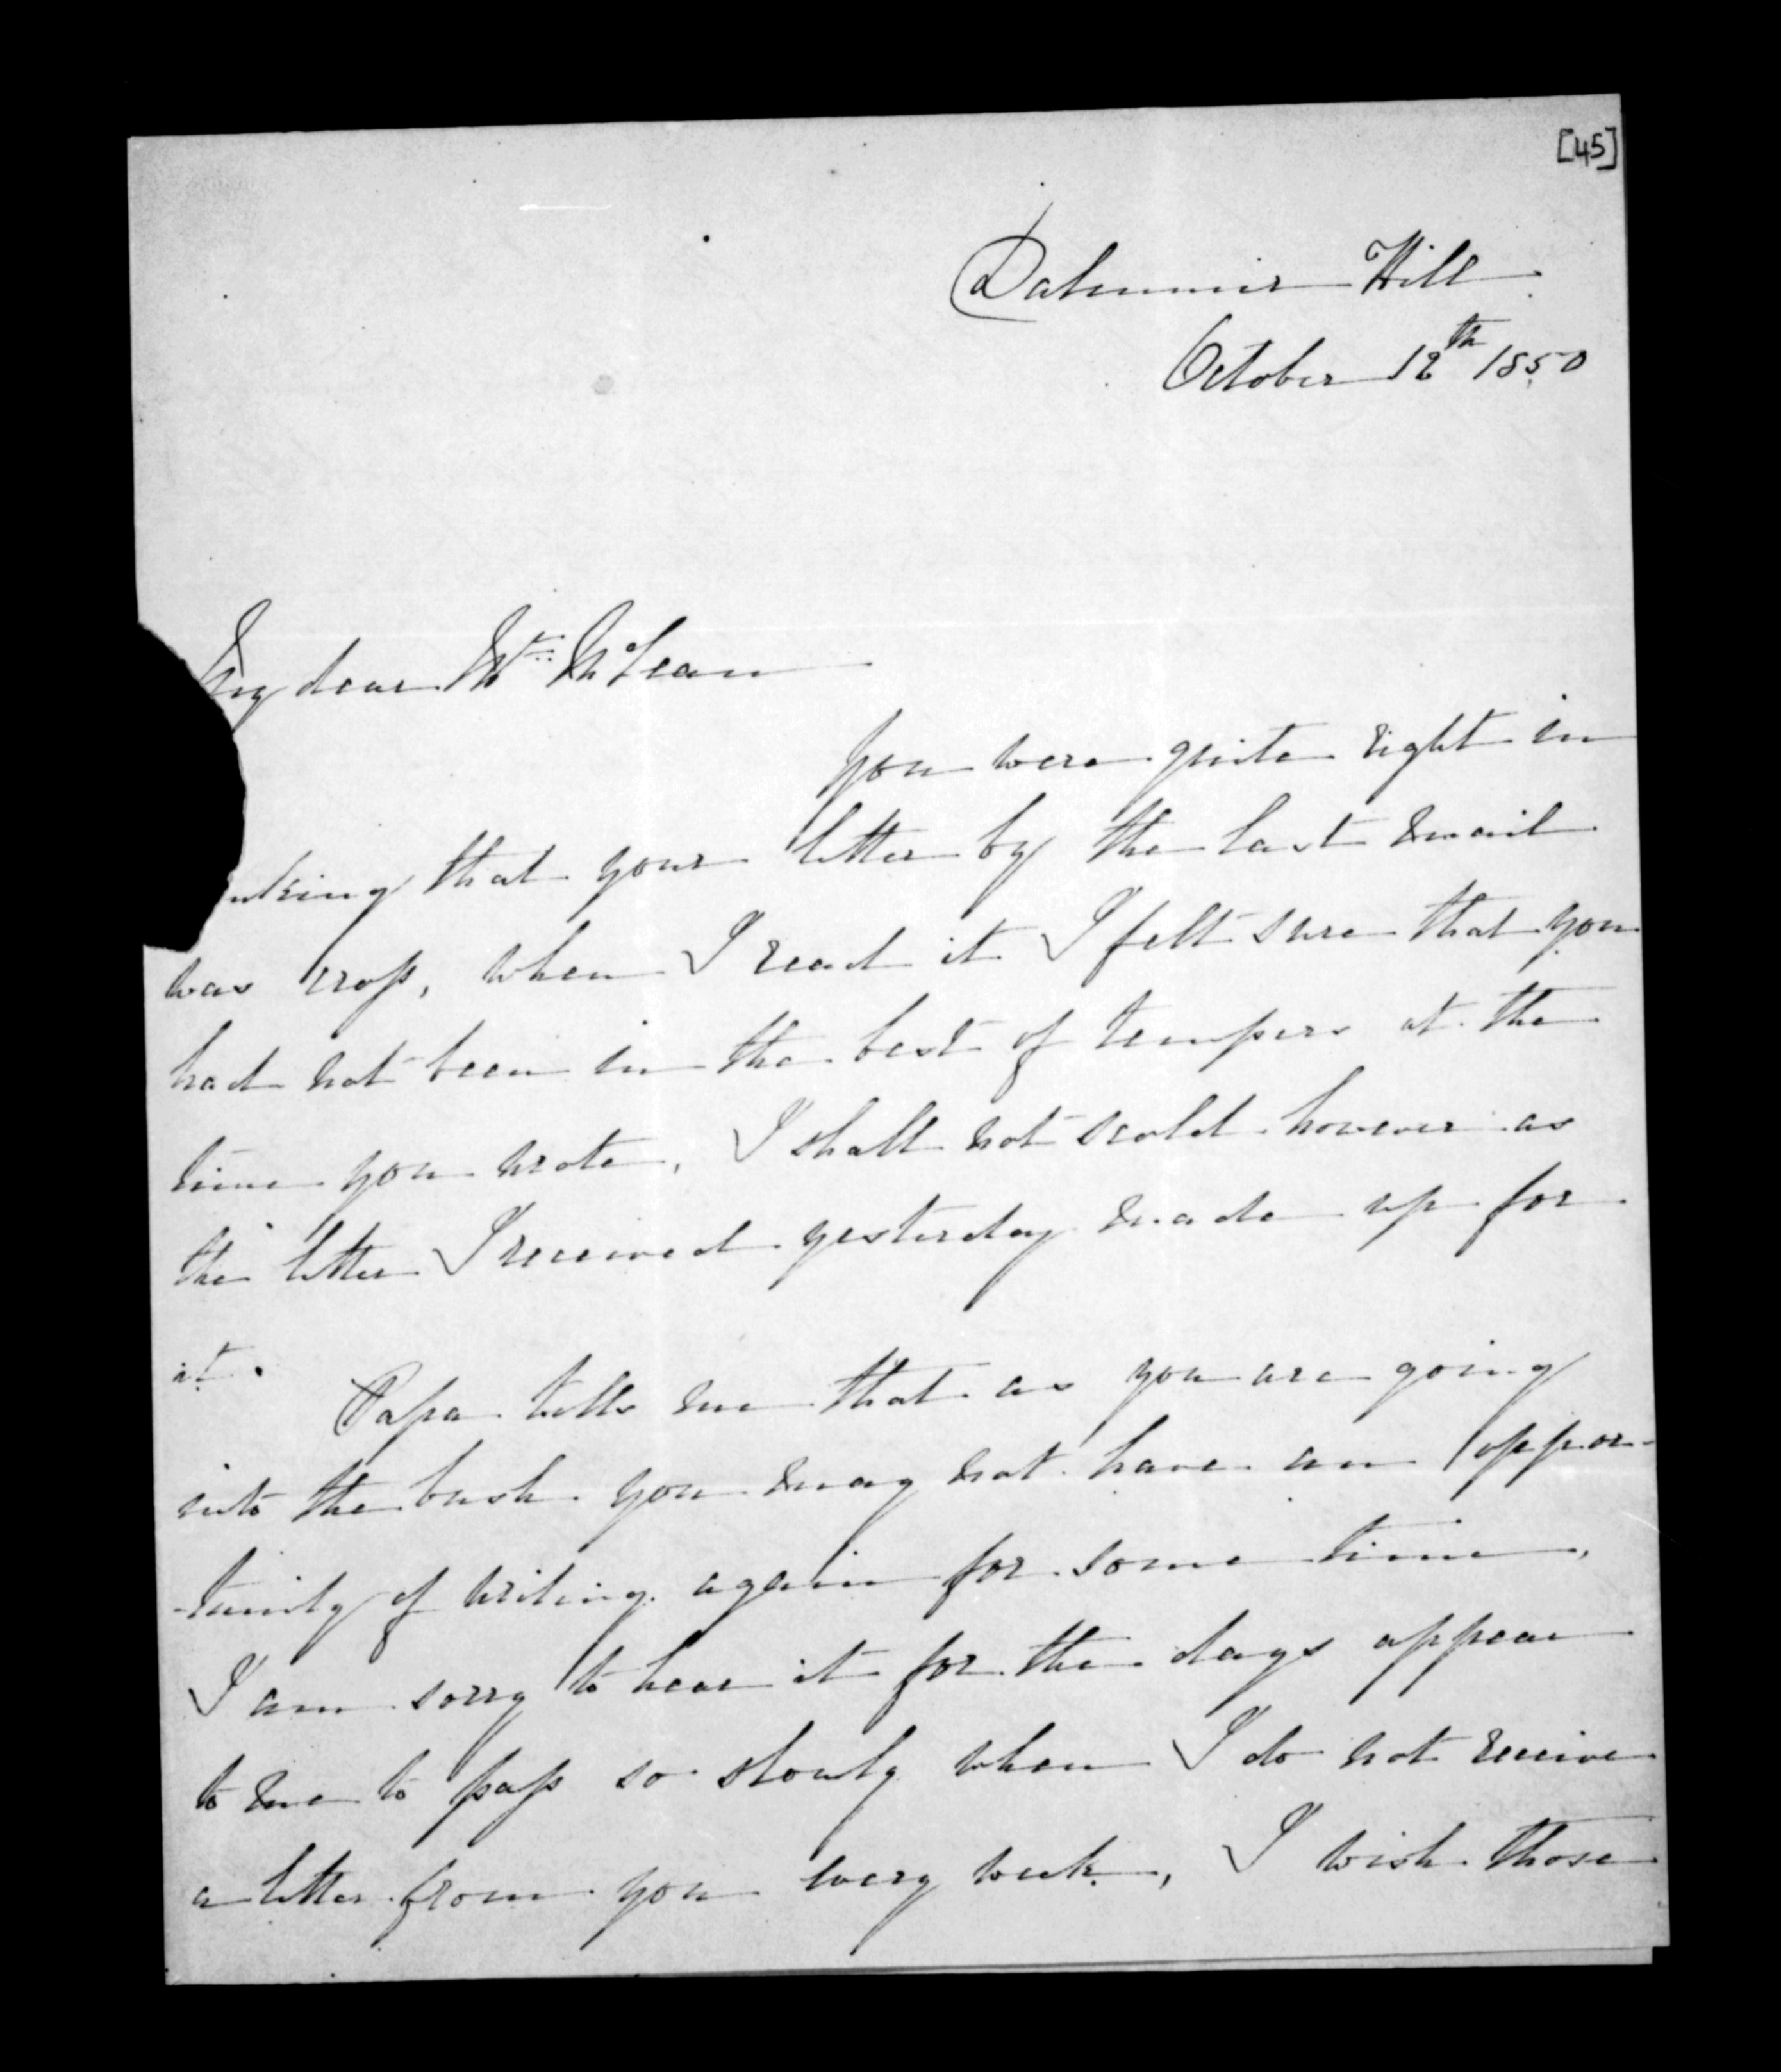 [45]
Dalmuir Hill
October 12th 1850
My dear Mr McLean
You were quite right in
nking that your letter by the last mail
was cross, when I read it I felt sure that you
had not been in the best of tempers at the
time you wrote, I shall not scold however as
the letter I received yesterday made up for
it.
Papa tells me that as you are going
into the bush you may not have an oppor-
-tunity of writing again for some time,
I am sorry to hear it for the days appear
to me to pass so slowly when I do not receive
a letter from you every week, I wish those